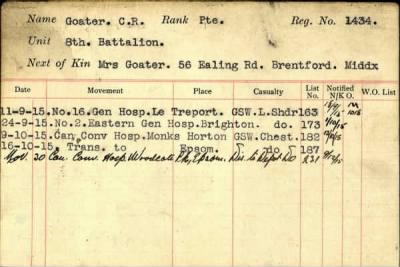 Name Goater. C.R. Rank Pte. Reg. No. 1434.
Unit 8th. Battalion.
Next of Kin Mrs Goater. 56 Ealing Rd. Brentford. Middx
Date Movement Place Casualty List No. Notified N/K O. W.O. List
11-9-15. No.16.Gen Hosp. Le Treport. GSW.L.Shdr 163
24-9-15. No.2.Eastern Gen Hosp. Brighton. do. 173
9-10-15. Can. Conv Hosp. Monks Horton GSW.Chest. 182
16-10-15. Trans. to Epsom. do 187
Nov. 30 Can. Conv. Hosp. Woodcote Pk, Epsom. Dis. to Depot Do 231